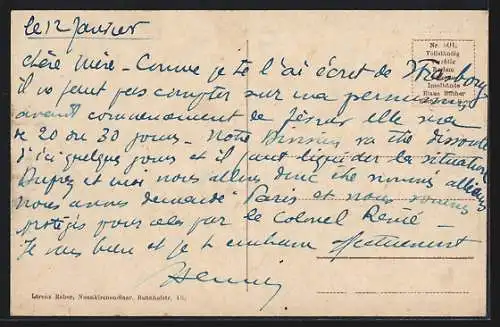 le 12 Janvier
chère Mère - Comme je te l'ai écrit de Strasbourg
il ne faut pas compter sur ma permission
avant commencement de février elle sera
de 20 ou 30 jours - Notre Division va être dissoute
d'ici quelques jours et il faut liquider la situation
Duprez et moi nous allons donc être nommés ailleurs
nous avons demandé Paris et nous sommes
protégés pour cela par le Colonel René -
Je vais bien et je t'embrasse affectueusement
Henri
Nr. 501.
Vollständig
Inselbände
Lorenz Reber, Neunkirchen-Saar, Bahnhofstr. 45.